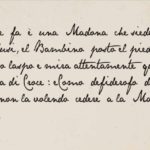 e fa è una Madona che siede
use, el Bambino posto el pied
o laspo e mira attentamente qu
a di Croce: eComo desiderofo d
non la volendo cedere a la Ma